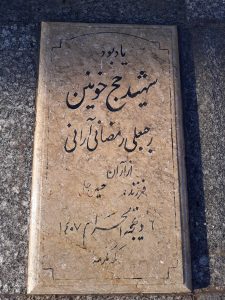 یادبود
شهید حج خونین
رجبعلی رمضانی آرانی
از آران
فرزند حسین
۶ ذیحجه الحرام ۱۴۰۷
مکه مکرمه